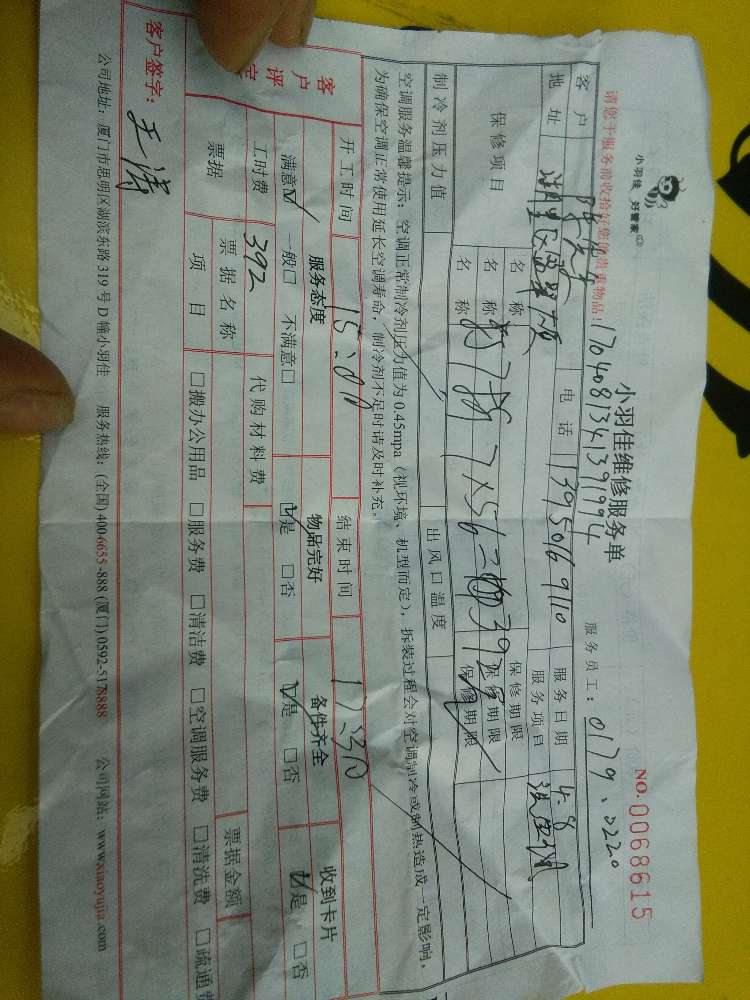 小羽佳 好管家
小羽佳维修服务单
NO.0068615
1704081341391994
服务员工：0179.0220
请您于服务前收拾好您的贵重物品！
客户 电话 13950169110 服务日期 4.8
地址 湖里区 服务项目
保修项目 名称 保修期限
名称 保修期限
名称 7×56=392 保修期限
制冷剂压力值 出风口温度
空调服务温馨提示：空调正常制冷剂压力值为0.45mpa（视环境、机型而定），拆装过程会对空调制冷或制热造成一定影响，
为确保空调正常使用延长空调寿命，制冷剂不足时请及时补充。
开工时间 15:00 结束时间 17:30
客户评定 服务态度 物品完好 备件齐全 收到卡片
满意☑ 一般□ 不满意□ ☑是 □否 ☑是 □否 ☑是 □否
工时费 392 代购材料费
票据 票据名称 票据金额
项目 □搬办公用品 □服务费 □清洁费 □空调服务费 □清洗费 □疏通费
客户签字：王涛
公司地址：厦门市思明区湖滨东路319号D幢小羽佳 服务热线：(全国)400-6655-888 (厦门)0592-5178888 公司网站：www.xiaoyujia.com